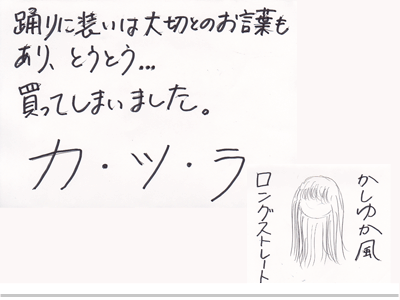 踊りに装いは大切とのお言葉も
あり、とうとう…
買ってしまいました。
カ・ツ・ラ
かしゆか風
ロングストレート